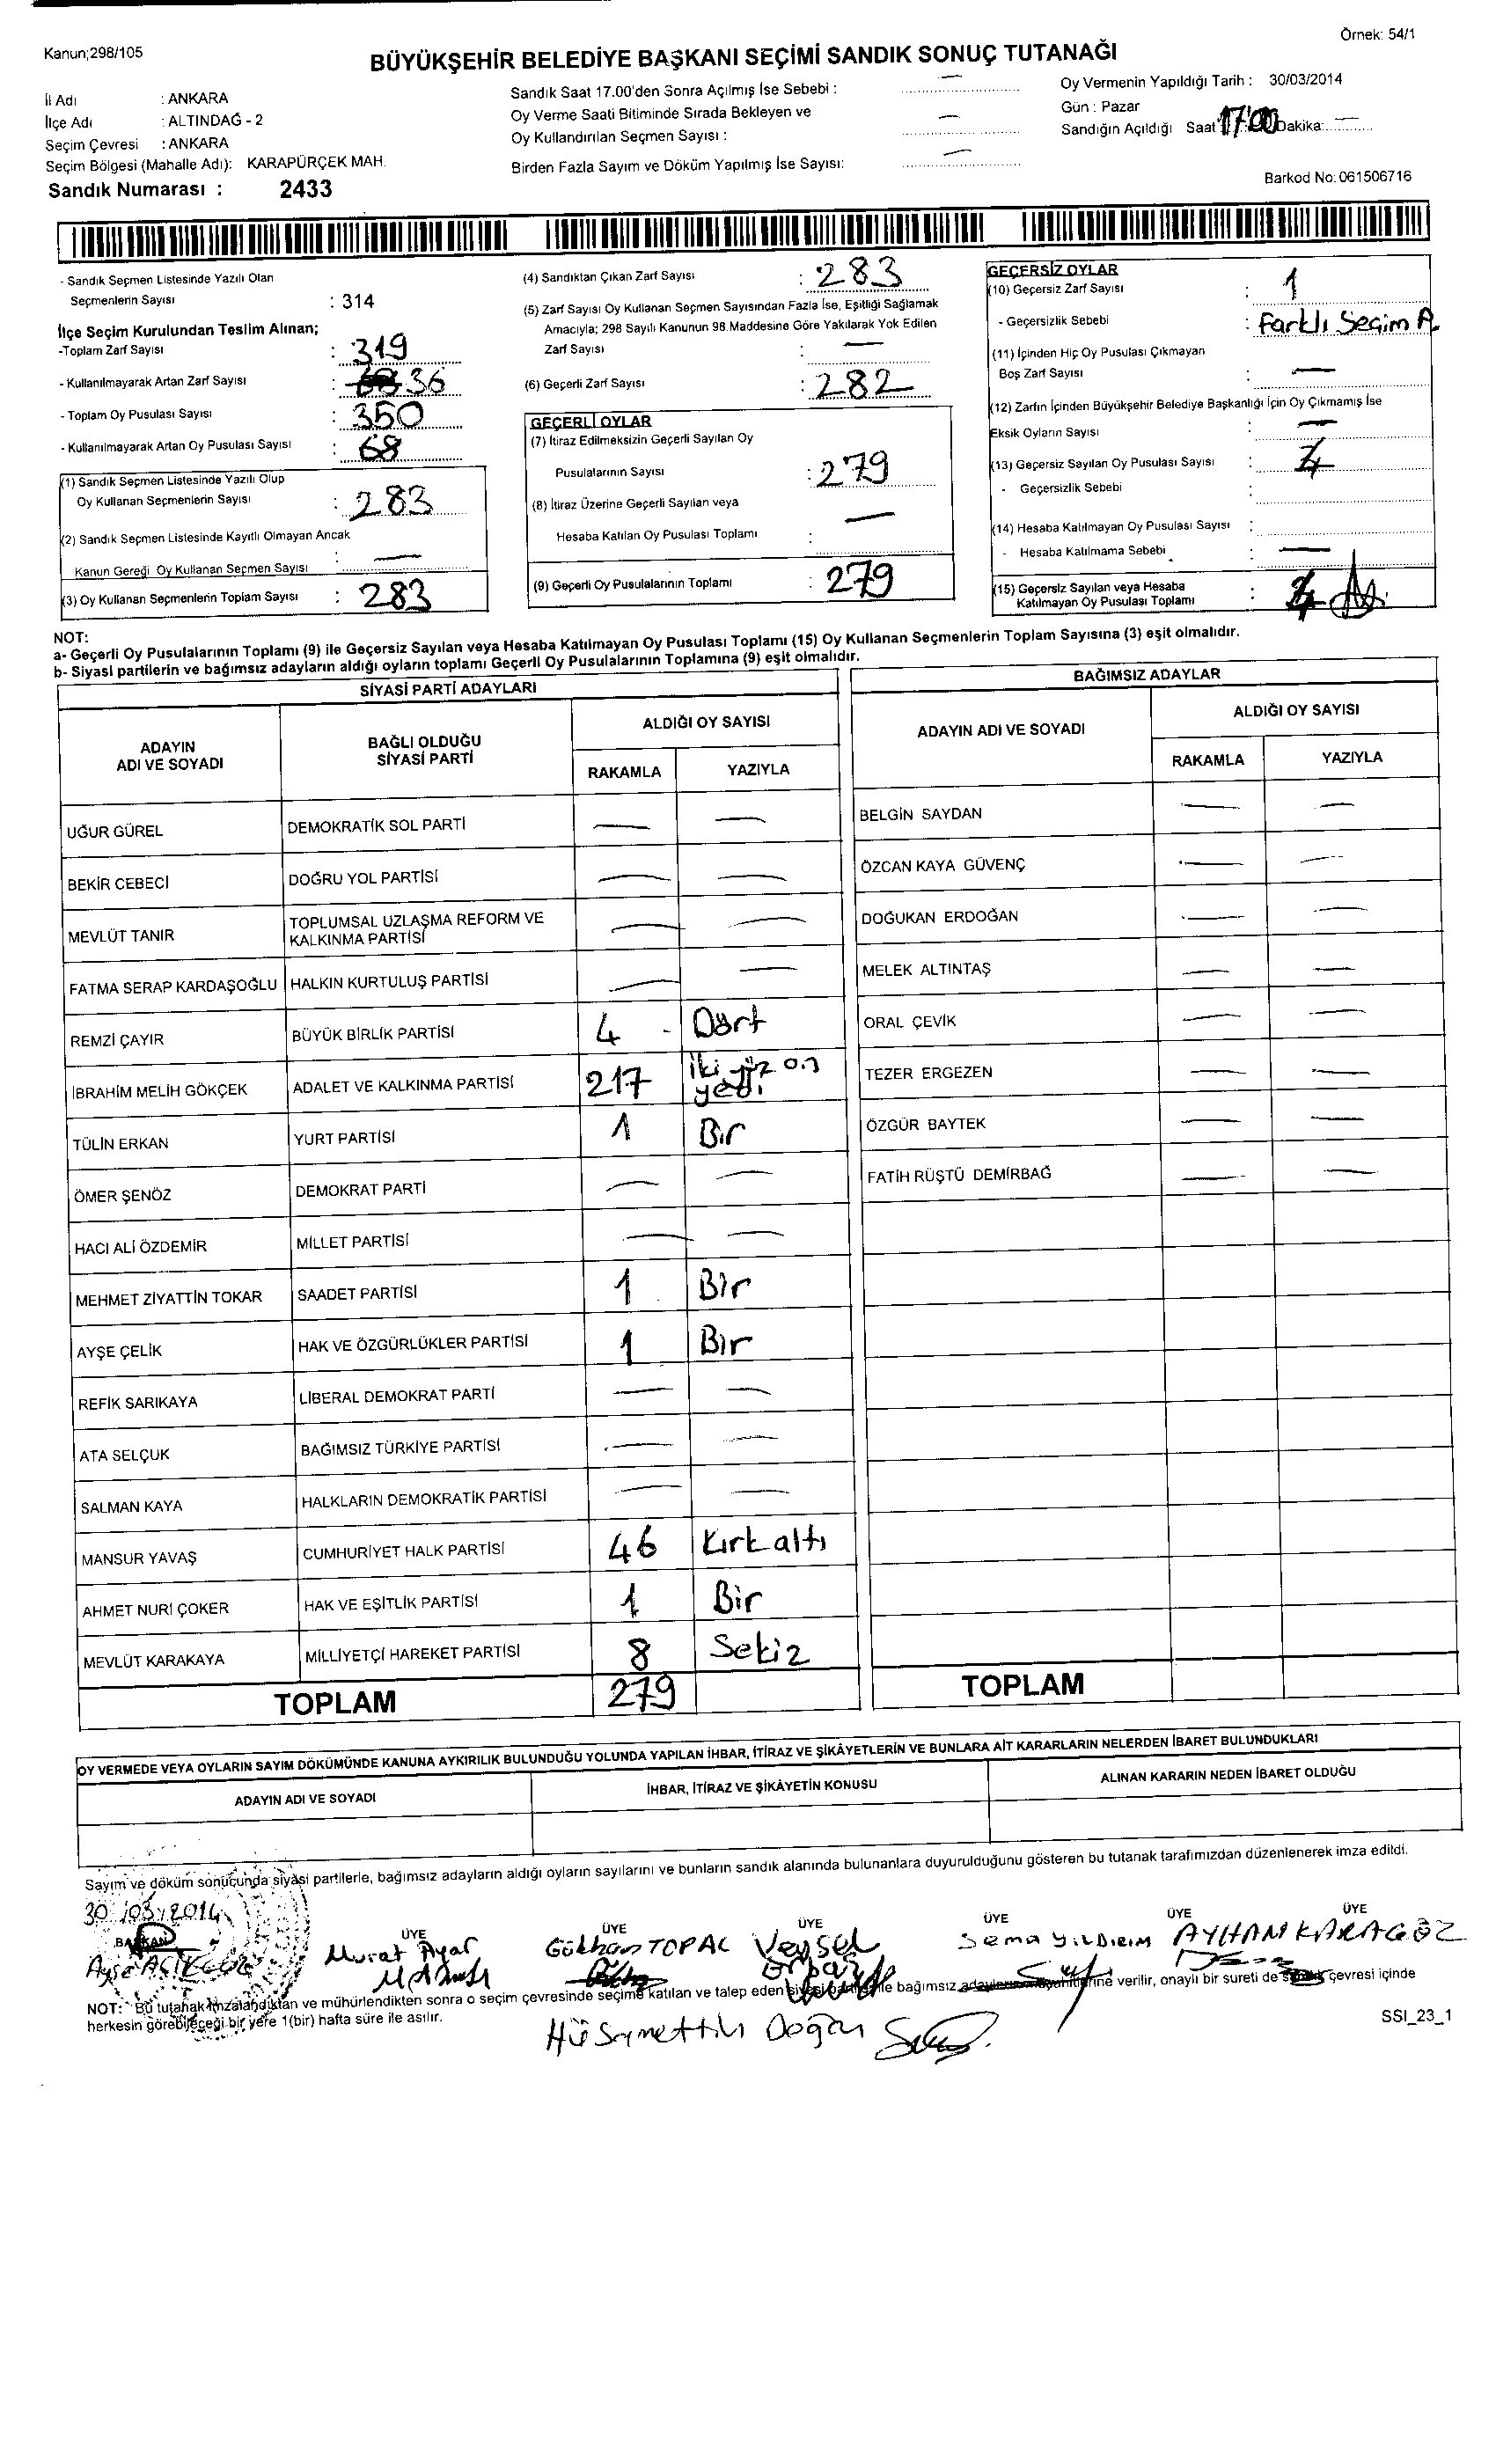 Örnek: 54/1
Kanun;298/105
BÜYÜKŞEHİR BELEDİYE BAŞKANI SEÇİMİ SANDIK SONUÇ TUTANAĞI
İl Adı : ANKARA
İlçe Adı : ALTINDAĞ - 2
Seçim Çevresi : ANKARA
Seçim Bölgesi (Mahalle Adı): KARAPÜRÇEK MAH.
Sandık Numarası : 2433
Sandık Saat 17.00'den Sonra Açılmış İse Sebebi : —
Oy Verme Saati Bitiminde Sırada Bekleyen ve
Oy Kullandırılan Seçmen Sayısı : —
Birden Fazla Sayım ve Döküm Yapılmış İse Sayısı: —
Oy Vermenin Yapıldığı Tarih : 30/03/2014
Gün : Pazar
Sandığın Açıldığı Saat 17:00 Dakika: —
Barkod No: 061506716
- Sandık Seçmen Listesinde Yazılı Olan
Seçmenlerin Sayısı : 314
İlçe Seçim Kurulundan Teslim Alınan;
-Toplam Zarf Sayısı : 319
- Kullanılmayarak Artan Zarf Sayısı : 36
- Toplam Oy Pusulası Sayısı : 350
- Kullanılmayarak Artan Oy Pusulası Sayısı : 68
(1) Sandık Seçmen Listesinde Yazılı Olup
Oy Kullanan Seçmenlerin Sayısı : 283
(2) Sandık Seçmen Listesinde Kayıtlı Olmayan Ancak
Kanun Gereği Oy Kullanan Seçmen Sayısı : —
(3) Oy Kullanan Seçmenlerin Toplam Sayısı : 283
(4) Sandıktan Çıkan Zarf Sayısı : 283
(5) Zarf Sayısı Oy Kullanan Seçmen Sayısından Fazla İse, Eşitliği Sağlamak
Amacıyla; 298 Sayılı Kanunun 98.Maddesine Göre Yakılarak Yok Edilen
Zarf Sayısı : —
(6) Geçerli Zarf Sayısı : 282
GEÇERLİ OYLAR
(7) İtiraz Edilmeksizin Geçerli Sayılan Oy
Pusulalarının Sayısı : 279
(8) İtiraz Üzerine Geçerli Sayılan veya
Hesaba Katılan Oy Pusulası Toplamı : —
(9) Geçerli Oy Pusulalarının Toplamı : 279
GEÇERSİZ OYLAR
(10) Geçersiz Zarf Sayısı : 1
- Geçersizlik Sebebi : Farklı Seçim A.
(11) İçinden Hiç Oy Pusulası Çıkmayan
Boş Zarf Sayısı : —
(12) Zarfın İçinden Büyükşehir Belediye Başkanlığı İçin Oy Çıkmamış İse
Eksik Oyların Sayısı : —
(13) Geçersiz Sayılan Oy Pusulası Sayısı : 4
- Geçersizlik Sebebi :
(14) Hesaba Katılmayan Oy Pusulası Sayısı :
- Hesaba Katılmama Sebebi : —
(15) Geçersiz Sayılan veya Hesaba
Katılmayan Oy Pusulası Toplamı : 4
NOT:
a- Geçerli Oy Pusulalarının Toplamı (9) ile Geçersiz Sayılan veya Hesaba Katılmayan Oy Pusulası Toplamı (15) Oy Kullanan Seçmenlerin Toplam Sayısına (3) eşit olmalıdır.
b- Siyasi partilerin ve bağımsız adayların aldığı oyların toplamı Geçerli Oy Pusulalarının Toplamına (9) eşit olmalıdır.
SİYASİ PARTİ ADAYLARI
ADAYIN ADI VE SOYADI BAĞLI OLDUĞU SİYASİ PARTİ ALDIĞI OY SAYISI
RAKAMLA YAZIYLA
UĞUR GÜREL DEMOKRATİK SOL PARTİ — —
BEKİR CEBECİ DOĞRU YOL PARTİSİ — —
MEVLÜT TANIR TOPLUMSAL UZLAŞMA REFORM VE KALKINMA PARTİSİ — —
FATMA SERAP KARDAŞOĞLU HALKIN KURTULUŞ PARTİSİ — —
REMZİ ÇAYIR BÜYÜK BİRLİK PARTİSİ 4 - Dört
İBRAHİM MELİH GÖKÇEK ADALET VE KALKINMA PARTİSİ 217 iki yüz on yedi
TÜLİN ERKAN YURT PARTİSİ 1 Bir
ÖMER ŞENÖZ DEMOKRAT PARTİ — —
HACI ALİ ÖZDEMİR MİLLET PARTİSİ — —
MEHMET ZİYATTİN TOKAR SAADET PARTİSİ 1 Bir
AYŞE ÇELİK HAK VE ÖZGÜRLÜKLER PARTİSİ 1 Bir
REFİK SARIKAYA LİBERAL DEMOKRAT PARTİ — —
ATA SELÇUK BAĞIMSIZ TÜRKİYE PARTİSİ — —
SALMAN KAYA HALKLARIN DEMOKRATİK PARTİSİ — —
MANSUR YAVAŞ CUMHURİYET HALK PARTİSİ 46 Kırk altı
AHMET NURİ ÇOKER HAK VE EŞİTLİK PARTİSİ 1 Bir
MEVLÜT KARAKAYA MİLLİYETÇİ HAREKET PARTİSİ 8 Sekiz
TOPLAM 279
BAĞIMSIZ ADAYLAR
ADAYIN ADI VE SOYADI ALDIĞI OY SAYISI
RAKAMLA YAZIYLA
BELGİN SAYDAN — —
ÖZCAN KAYA GÜVENÇ — —
DOĞUKAN ERDOĞAN — —
MELEK ALTINTAŞ — —
ORAL ÇEVİK — —
TEZER ERGEZEN — —
ÖZGÜR BAYTEK — —
FATİH RÜŞTÜ DEMİRBAĞ — —
TOPLAM
OY VERMEDE VEYA OYLARIN SAYIM DÖKÜMÜNDE KANUNA AYKIRILIK BULUNDUĞU YOLUNDA YAPILAN İHBAR, İTİRAZ VE ŞİKÂYETLERİN VE BUNLARA AİT KARARLARIN NELERDEN İBARET BULUNDUKLARI
ADAYIN ADI VE SOYADI İHBAR, İTİRAZ VE ŞİKÂYETİN KONUSU ALINAN KARARIN NEDEN İBARET OLDUĞU
Sayım ve döküm sonucunda siyasi partilerle, bağımsız adayların aldığı oyların sayılarını ve bunların sandık alanında bulunanlara duyurulduğunu gösteren bu tutanak tarafımızdan düzenlenerek imza edildi.
30/03/2014
BAŞKAN ÜYE ÜYE ÜYE ÜYE ÜYE ÜYE
Ayşe Murat Ayar Gökhan TOPAL Veysel Sema YILDIRIM AYHAN KARAGÖZ
NOT: Bu tutanak imzalandıktan ve mühürlendikten sonra o seçim çevresinde seçime katılan ve talep eden siyasi parti ile bağımsız verilir, onaylı bir sureti de çevresi içinde
herkesin görebileceği bir yere 1(bir) hafta süre ile asılır.
Doğan
SSI_23_1